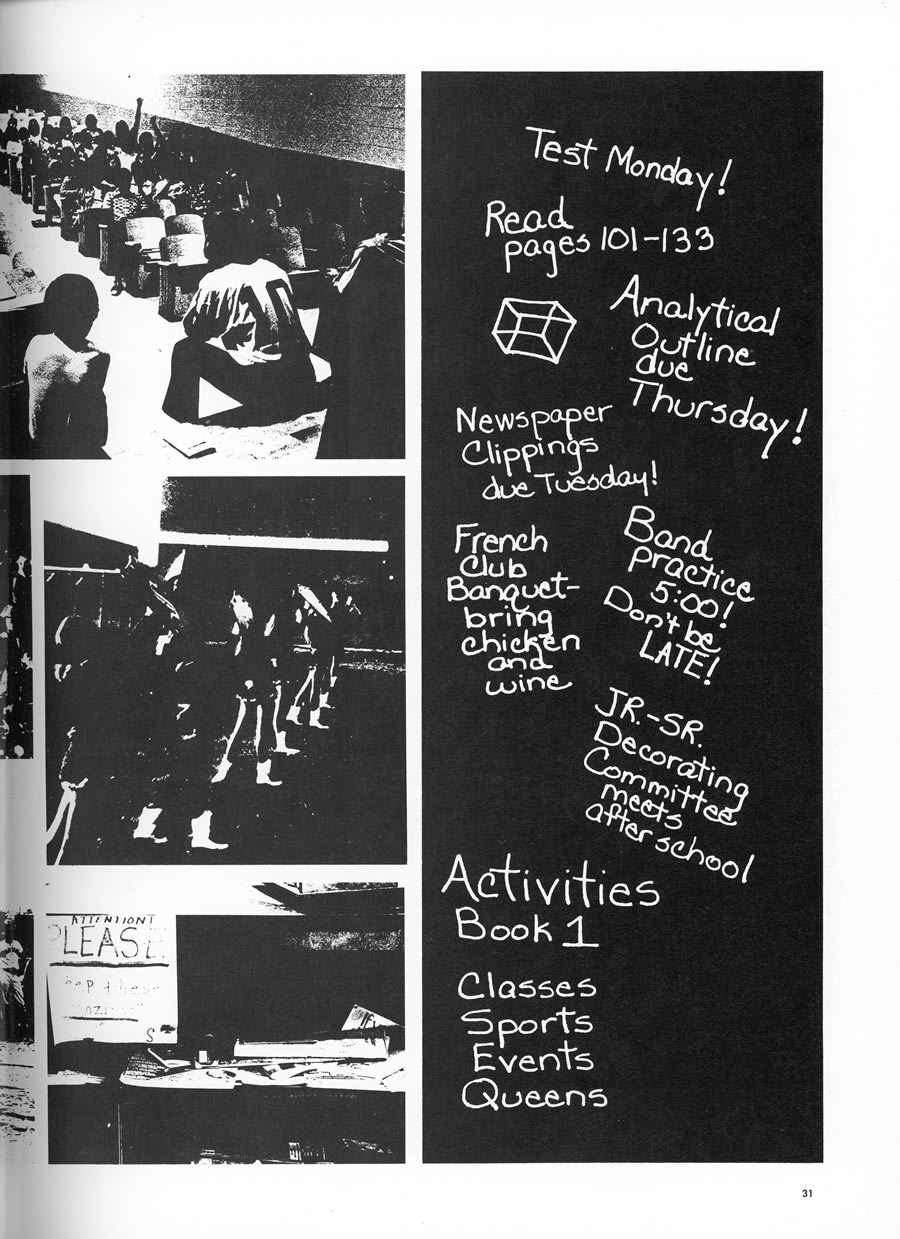 Test Monday!
Read
pages 101-133
Analytical
Outline
due
Thursday!
Newspaper
Clippings
due Tuesday!
French
Club
Banquet-
bring
chicken
and
wine
Band
practice
5:00!
Don't be
LATE!
JR.-SR.
Decorating
Committee
meets
after school
Activities
Book 1
Classes
Sports
Events
Queens
ATTENTION!
PLEASE
these
31